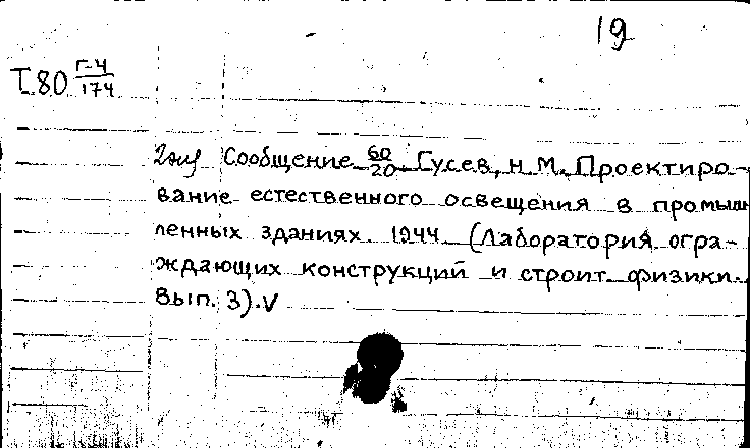 19
I 80 Г-4/174
2 экз Сообщение 60/20 Гусев, Н.М. Проектиро-
вание естественного освещения в промыш
ленных зданиях. 1944. (Лаборатория огра-
ждающих конструкций и строит. физики.
Вып. 3). V